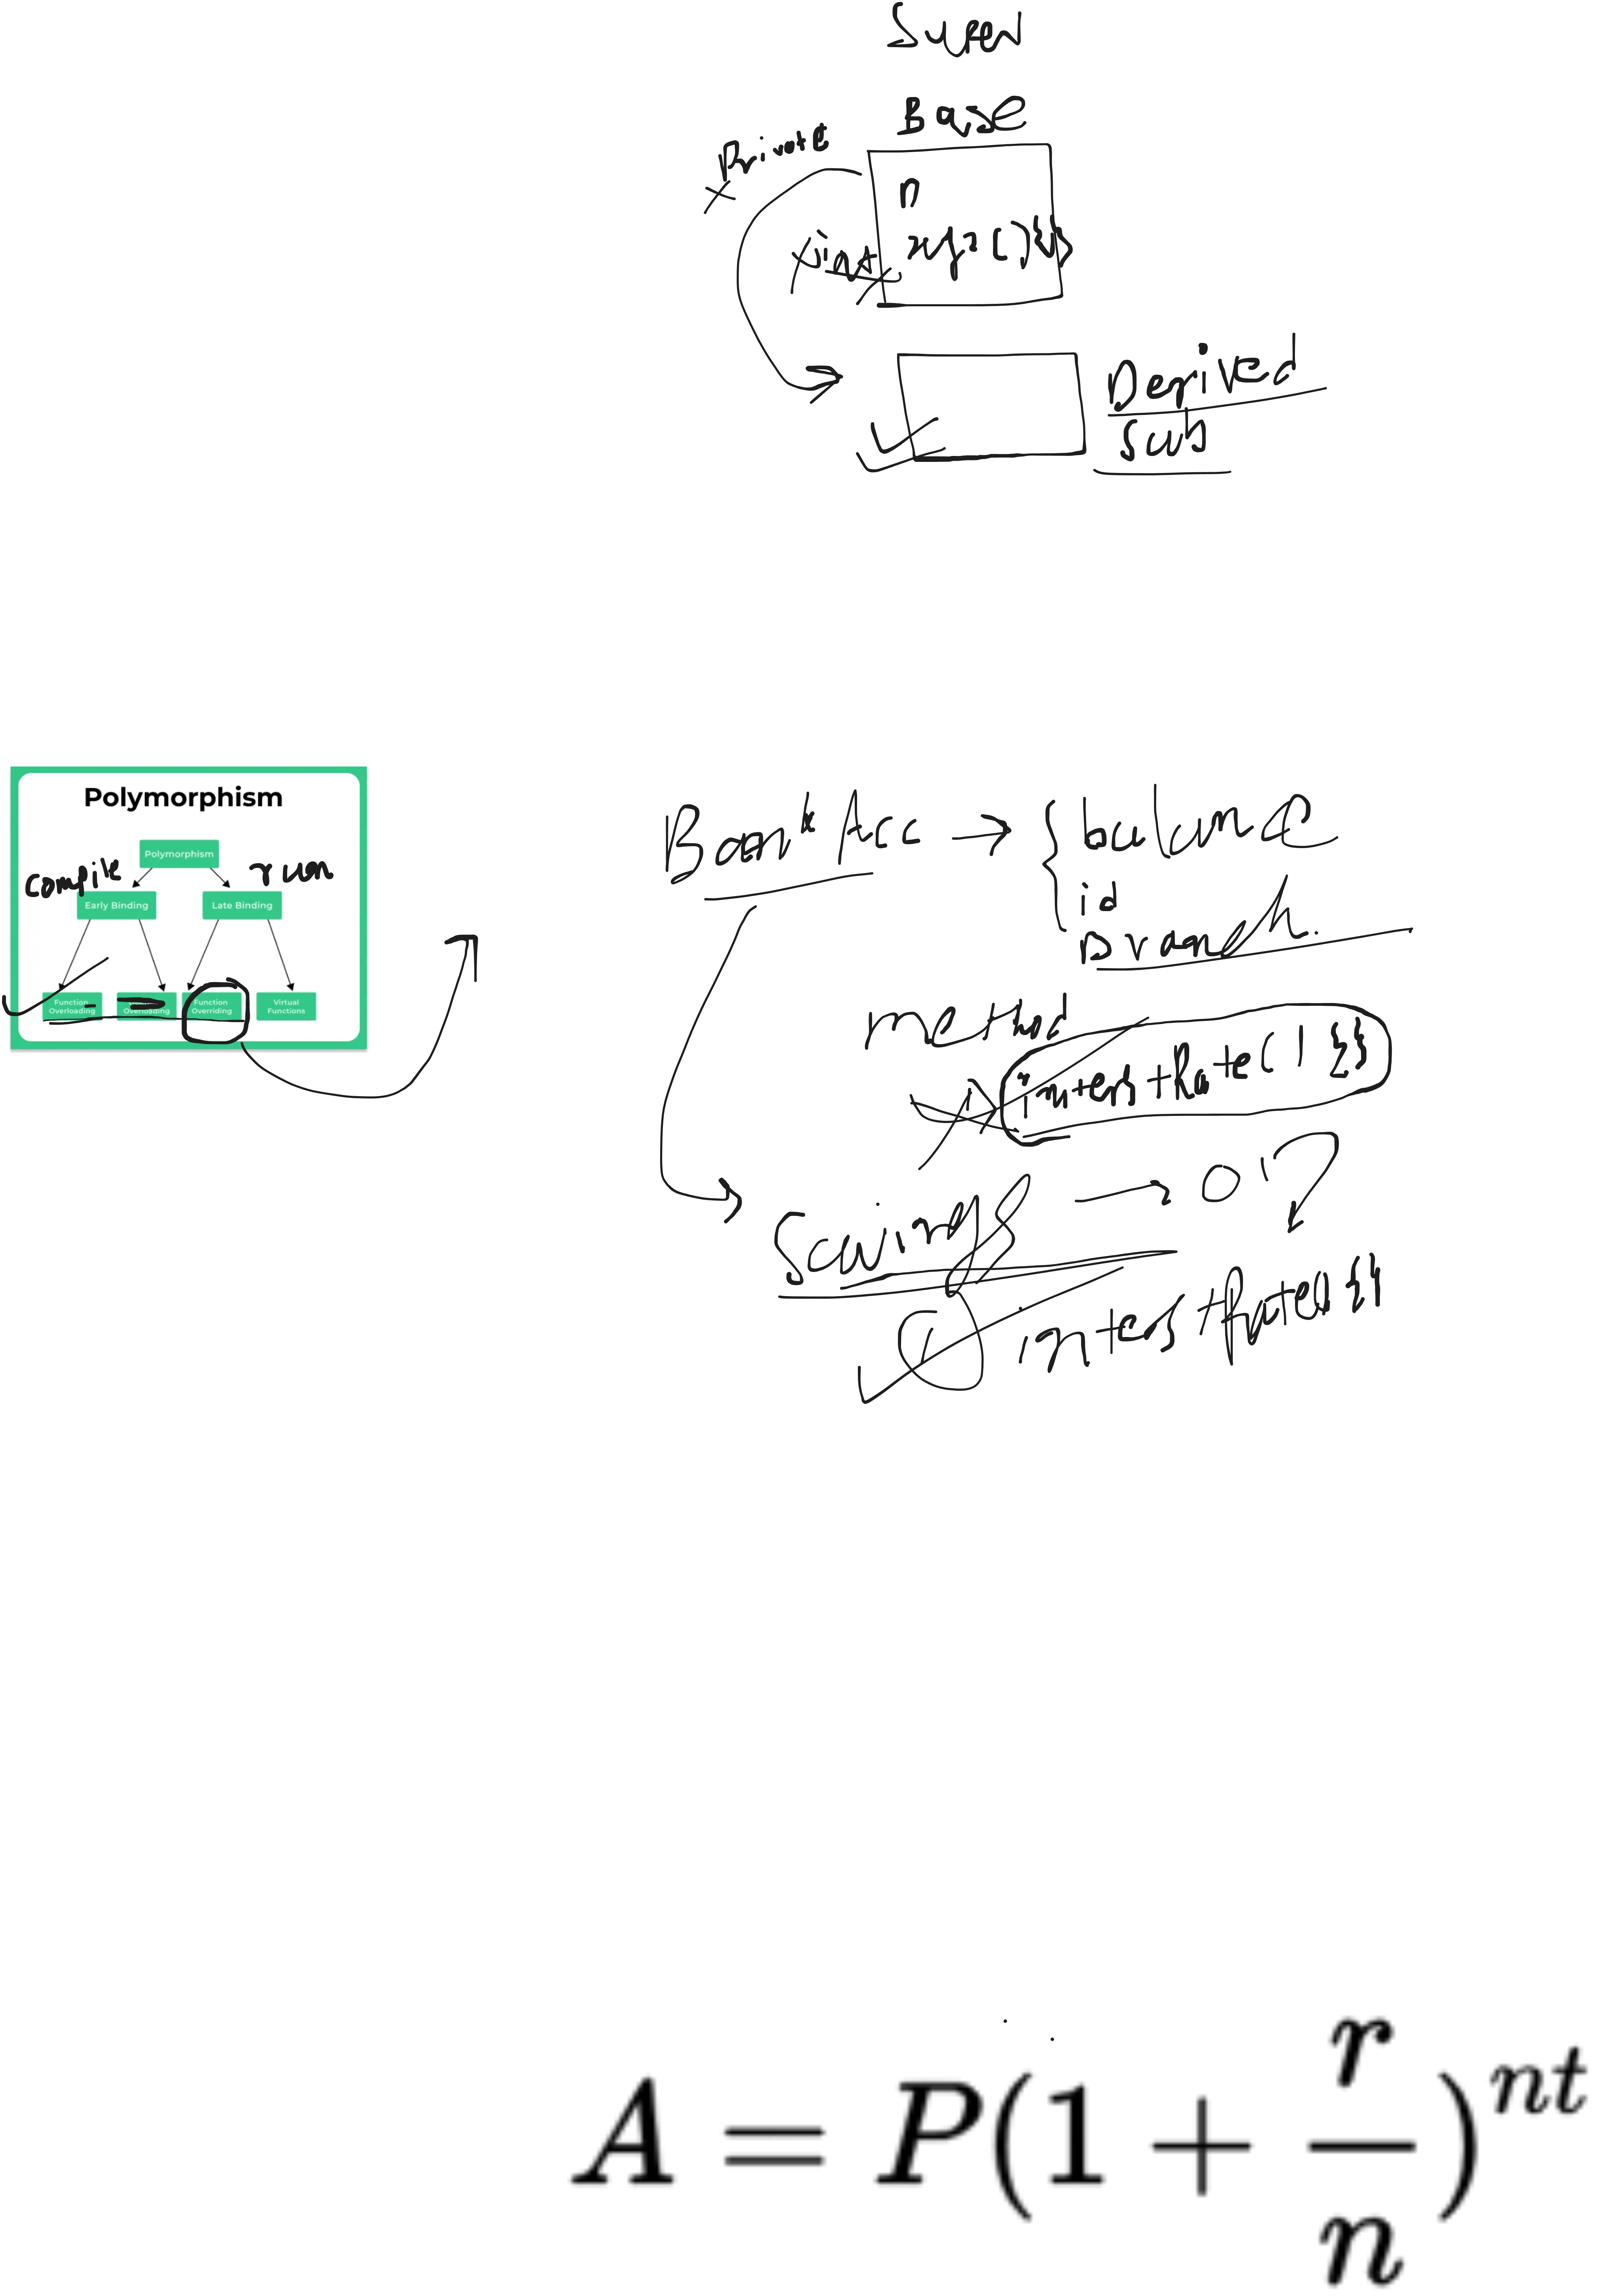 Super
Base
Private
n
xyz(){}
Derived
Sub
Polymorphism
Polymorphism
compile
run
Early Binding
Late Binding
Function
Overloading
Overloading
Function
Overriding
Virtual
Functions
Bank Acc → { balance
id
branch.
method
interestRate(){}
Savings → 0.7
① interestRate(){}
A = P(1 + r/n)^nt